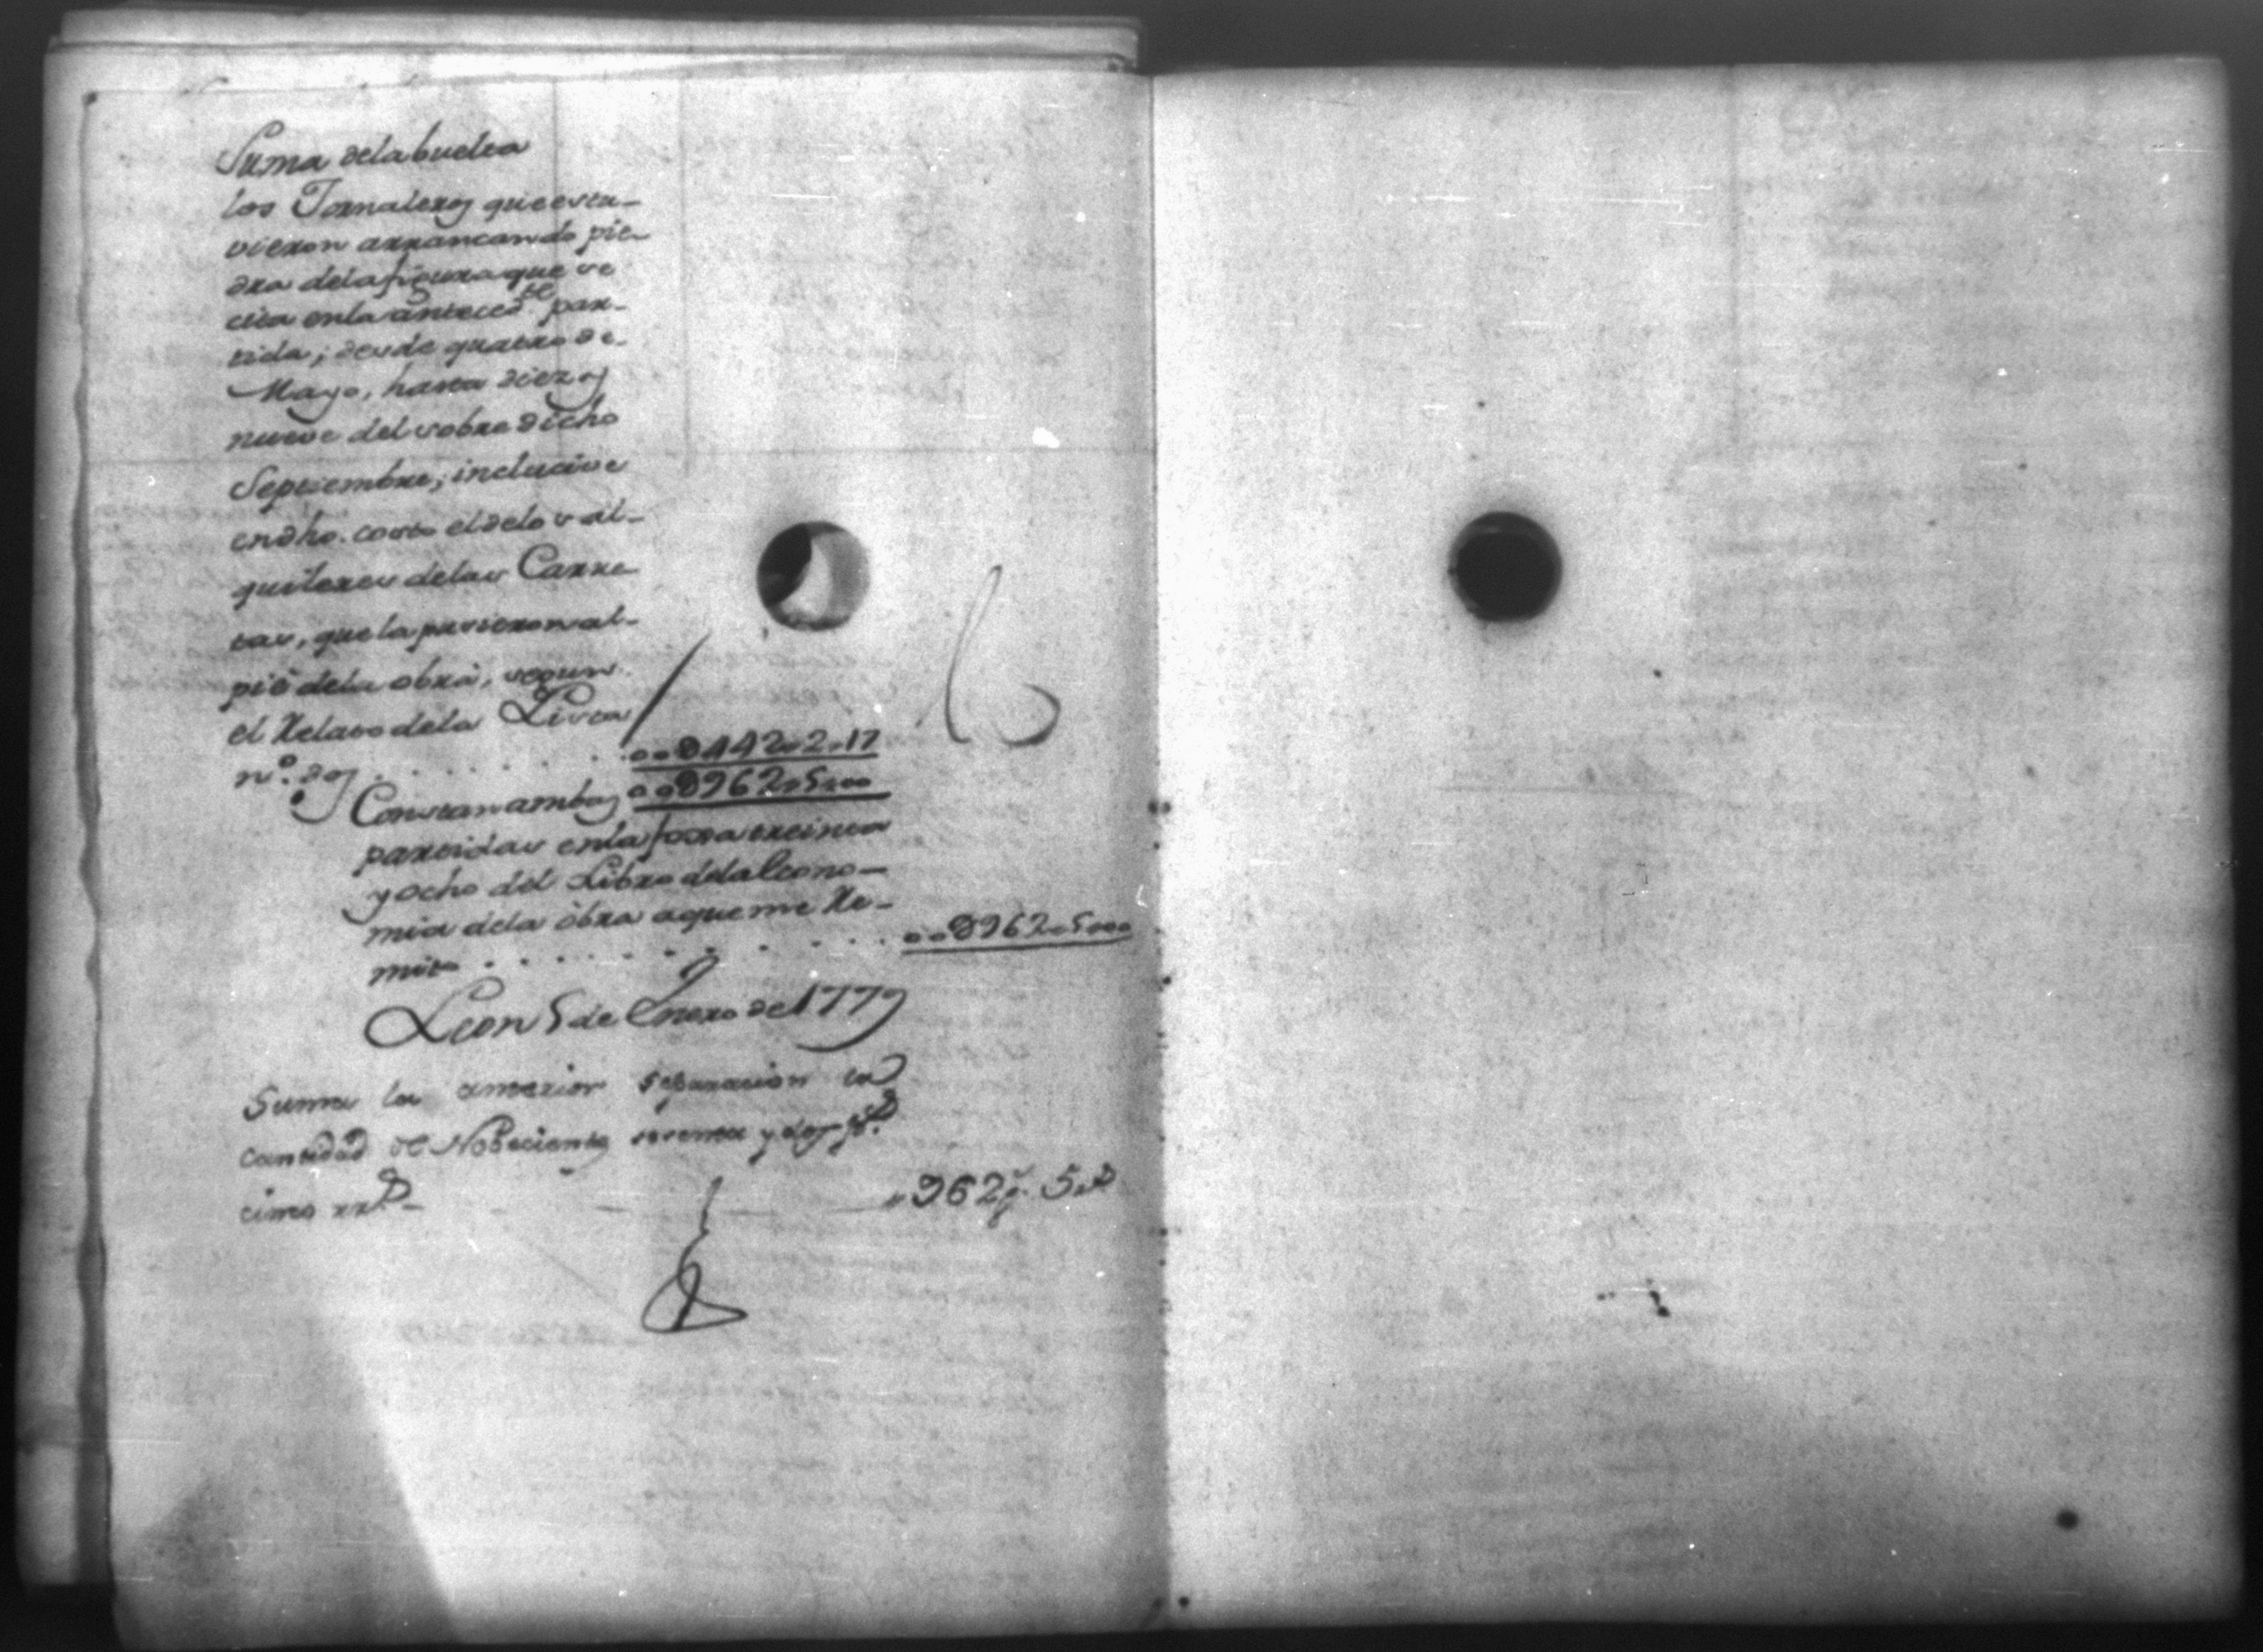 Suma dela buelta
los Jornaleros que estu-
vieron arrancando pie-
dra dela figura que se
cita enla anteced.te par-
tida; desde quatro de-
Mayo, hasta diez y
nueve del sobre dicho
Septiembre; inclusive
en dho. costo el delos al-
quileres delas Carre
tas, que la pusieron al-
pie dela obra, segun
el Relato dela Lista
n.º dos . . . . . . . 0442 2 17
Constan ambas 0962 5 00
partidas enla foxa treinta
y ocho del Libro dela Econo-
mia dela obra aque me Re-
mito . . . . . . . . 0962 5 00
Leon 5 de Enero de 1779
Suma la anterior separacion la
cantidad de Nobecientos sesenta y dos p.s
cinco rr.s - 962 p. 5 r.s